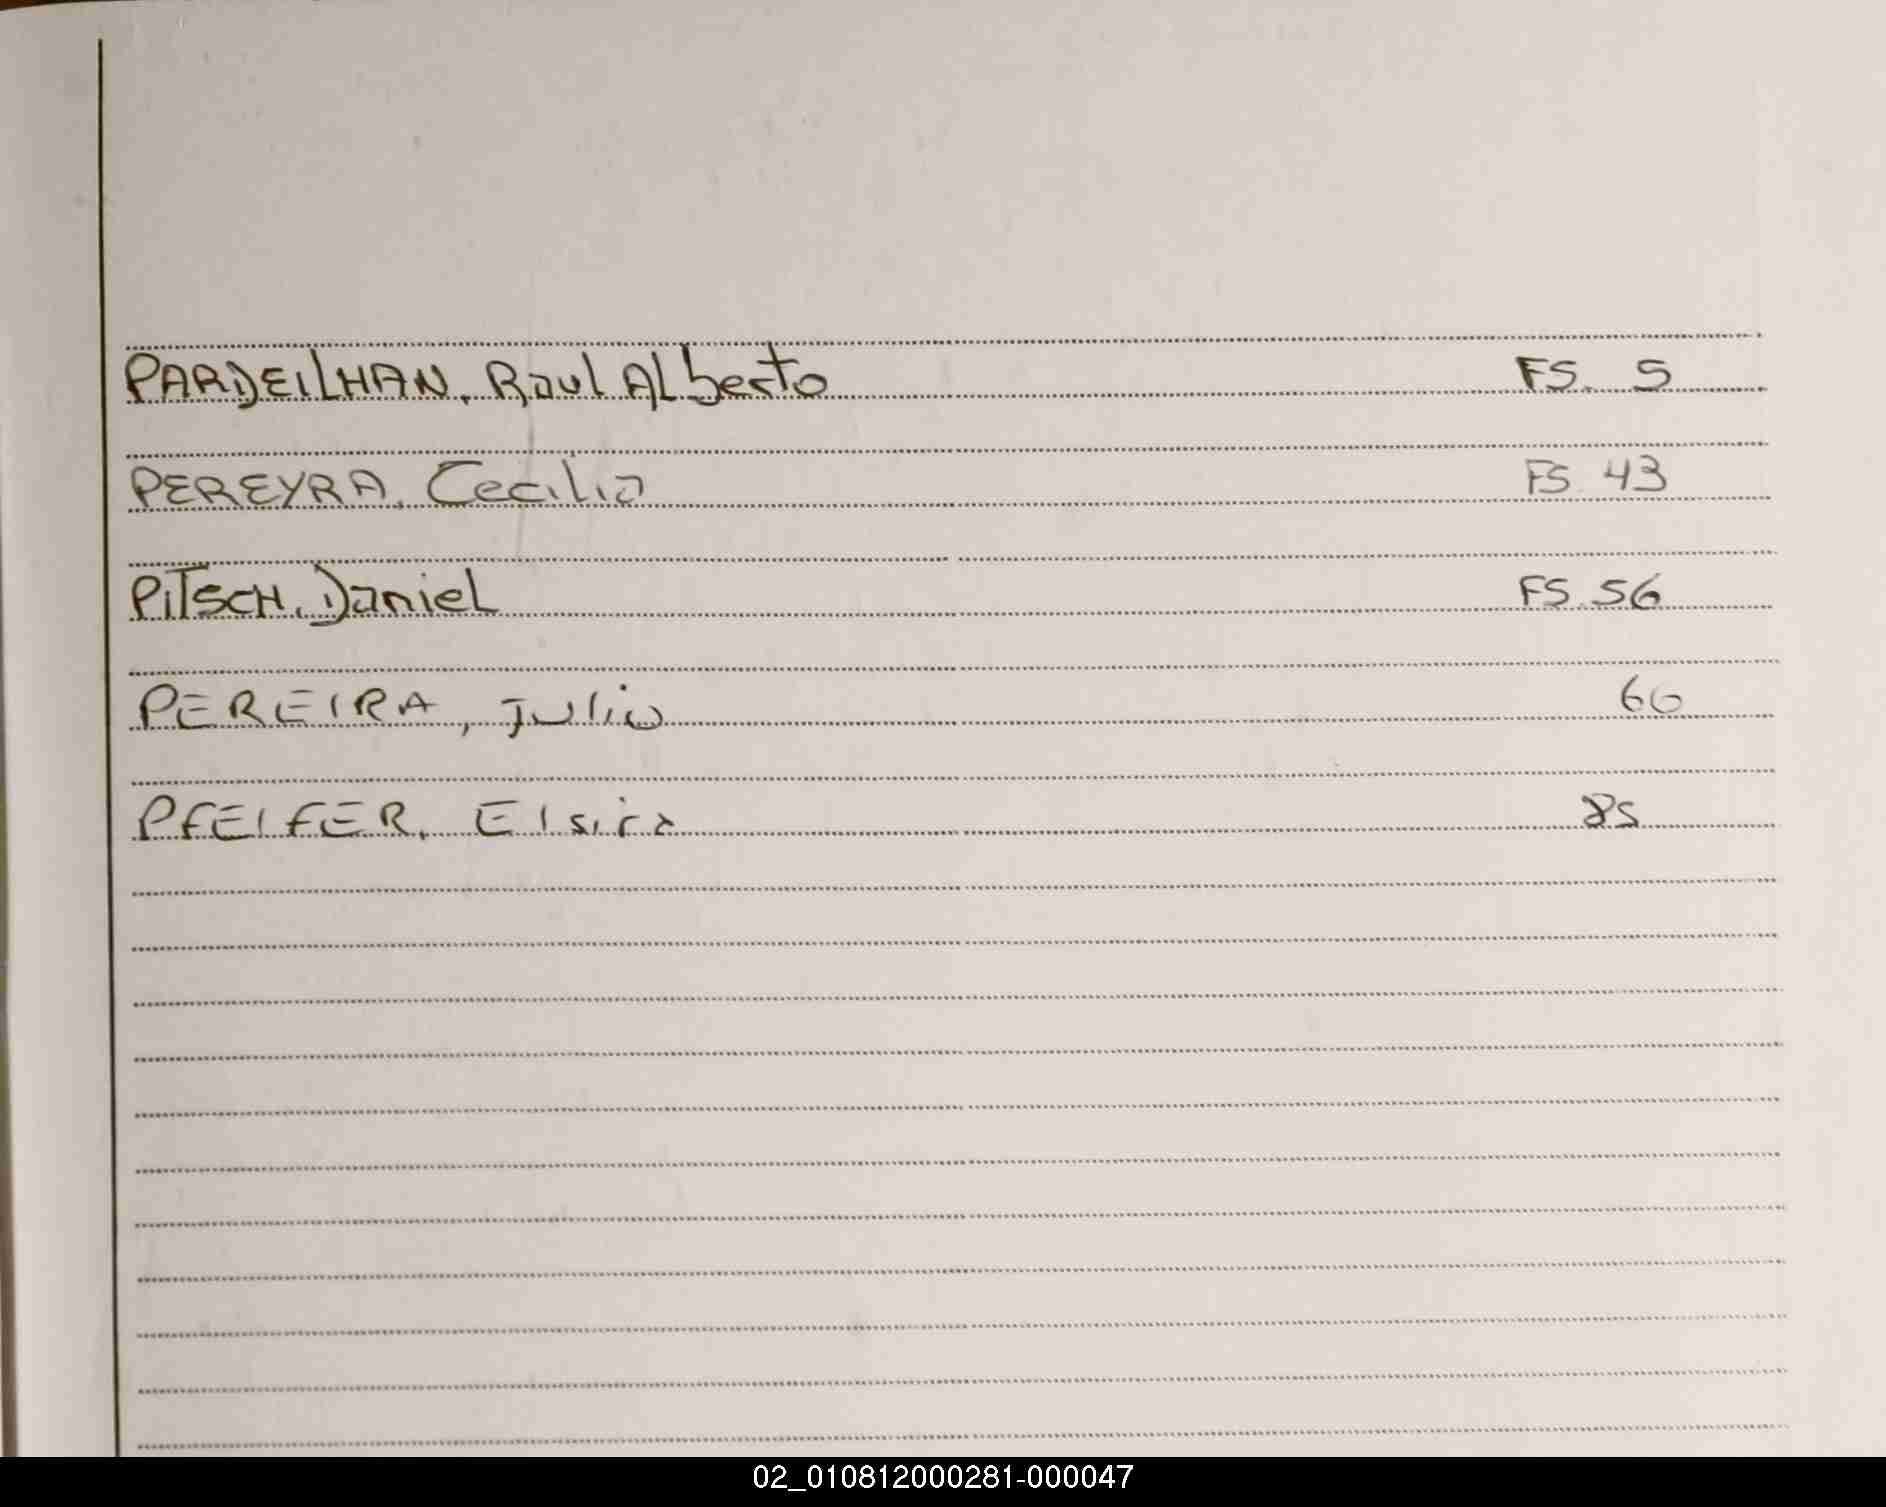 PARDEILHAN, Raul Alberto FS. 5
PEREYRA, Cecilia FS. 43
PITSCH, Daniel FS. 56
PEREIRA, Julio 66
PFEIFER, Elsira 85
02_010812000281-000047